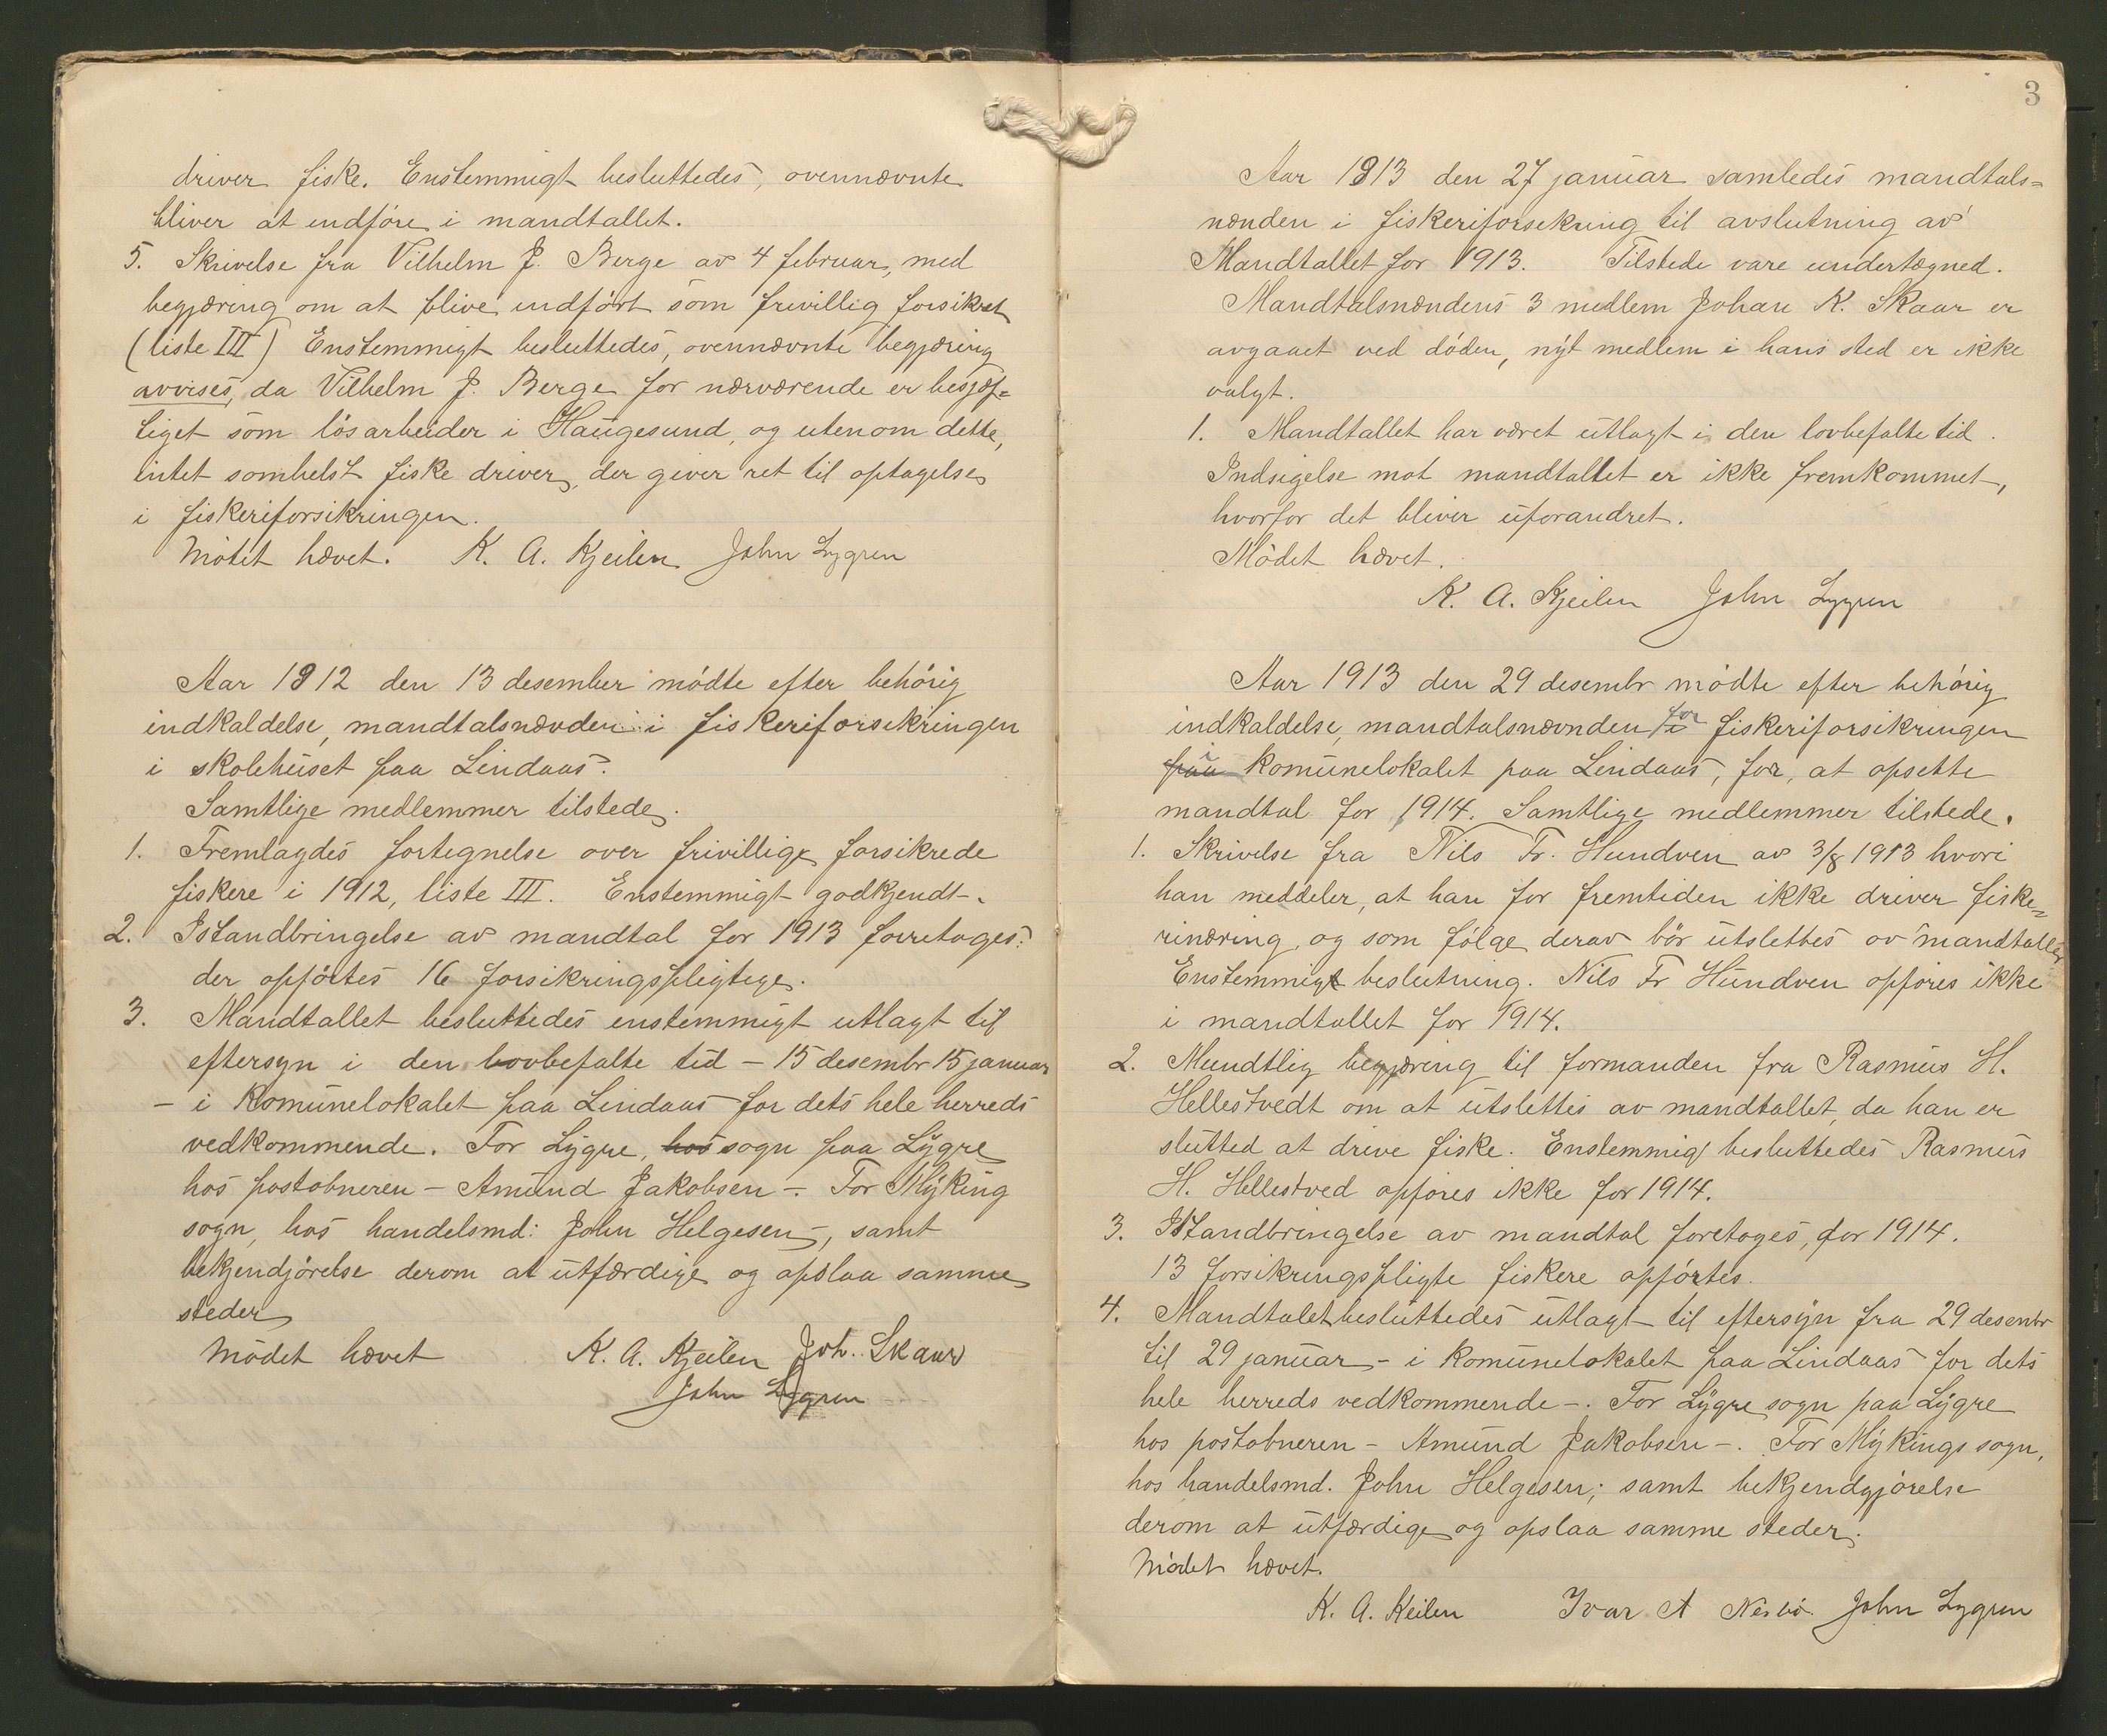 driver fiske. Enstemmigt besluttedes, ovennævnte
bliver at indføre i mandtallet.
5. Skrivelse fra Vilhelm J. Berge av 4 februar, med
begjæring om at blive indført som frivillig forsikret
(liste III) Enstemmigt besluttedes, ovennævnte begjæring
avvises, da Vilhelm J. Berge for nærværende er besjæf=
tiget som løsarbeider i Haugesund, og utenom dette,
intet somhelst fiske driver, der giver ret til optagelse
i fiskeriforsikringen.
Møtet hævet. K. A. Kjeilen John Lygren
Aar 1912 den 13 desember mødte efter behørig
indkaldelse, mandtalsnævden i fiskeriforsikringen
i skolehuset paa Lindaas.
Samtlige medlemmer tilstede.
1. Fremlagdes fortegnelse over frivillige forsikrede
fiskere i 1912, liste III. Enstemmigt godkjendt.
2. Istandbringelse av mandtal for 1913 forretoges:
der opførtes 16 forsikringspligtige.
3. Mandtallet besluttedes enstemmigt utlagt til
eftersyn i den lovbefalte tid - 15 desembr 15 januar
- i komunelokalet paa Lindaas for dets hele herreds
vedkommende. For Lygre, hos sogn paa Lygre
hos postobneren - Amund Jakobsen -. For Myking
sogn, hos handelsmd: John Helgesen -, samt
bekjendjørelse derom at utfærdige og opslaa samme
steder
Mødet hævet K. A. Kjeilen Joh. Skaar
John Lygren
3
Aar 1913 den 27 januar samledes mandtals=
nænden i fiskeriforsekring til avslutning av
Mandtallet for 1913. Tilstede vare undertægned.
Mandtalsnændens 3 medlem Johan K. Skaar er
avgaaet ved døden, nyt medlem i hans sted er ikke
valgt.
1. Mandtallet har været utlagt i den lovbefalte tid.
Indsigelse mot mandtallet er ikke fremkommet,
hvorfor det bliver uforandret.
Mødet hævet.
K. A. Kjeilen John Lygren
Aar 1913 den 29 desembr mødte efter behørig
indkaldelse, mandtalsnævnden i for fiskeriforsikringen
paa i komunelokalet paa Lindaas, for, at opsette
mandtal for 1914. Samtlige medlemmer tilstede.
1. Skrivelse fra Nils Fr. Hundven av 3/8 1913 hvori
han meddeler, at han for fremtiden ikke driver fiske=
rinæring, og som følge derav bør utslettes av mandtallet
Enstemmigt beslutning. Nils Fr Hundven opføres ikke
i mandtallet for 1914.
2. Mundtlig begjæring til formanden fra Rasmus H.
Hellestvedt om at utslettes av mandtallet, da han er
slutted at drive fiske. Enstemmig besluttedes Rasmus
H. Hellestved opføres ikke for 1914.
3. Istandbringelse av mandtal foretoges, for 1914.
13 forsikringspligte fiskere opførtes.
4. Mandtalet besluttedes utlagt til eftersyn fra 29 desembr
til 29 januar - i komunelokalet paa Lindaas for dets
hele herreds vedkommende -. For Lygre sogn paa Lygre
hos postobneren - Amund Jakobsen -. For Mykings sogn,
hos handelsmd. John Helgesen; samt bekjendgjørelse
derom at utfærdige og opslaa samme steder.
Mødet hævet.
K. A. Keilen Ivar A Nesbø John Lygren